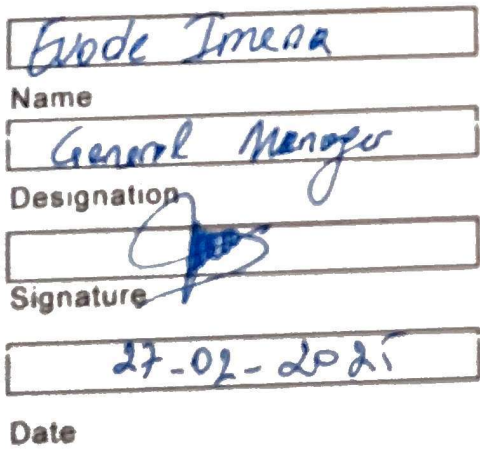 Evode Imena
Name
General Manager
Designation
Signature
27-02-2025
Date